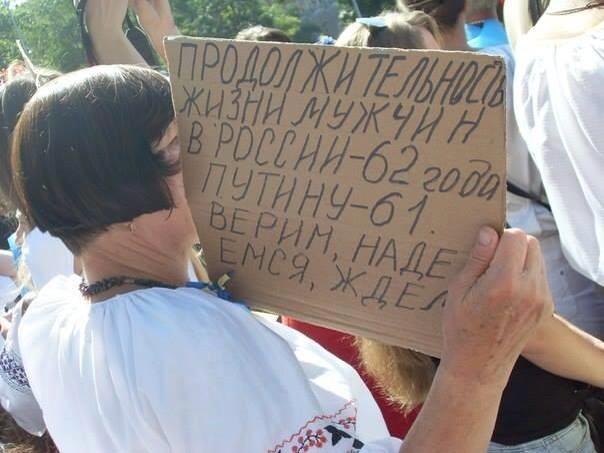 ПРОДОЛЖИТЕЛЬНОСТЬ
ЖИЗНИ МУЖЧИН
В РОССИИ-62 года
ПУТИНУ-61.
ВЕРИМ, НАДЕ
ЕМСЯ, ЖДЕМ